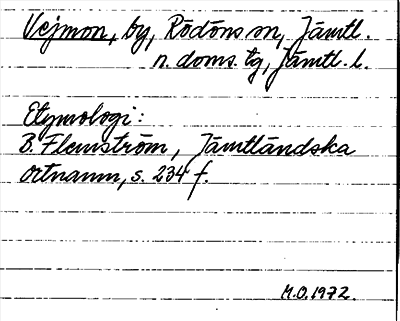 Vejmon, by, Rödöns sn, Jämtl.
n. doms. tg, Jämtl. l.
Etymologi:
B. Flemström, Jämtländska
ortnamn, s. 234 f.
M.O. 1972.